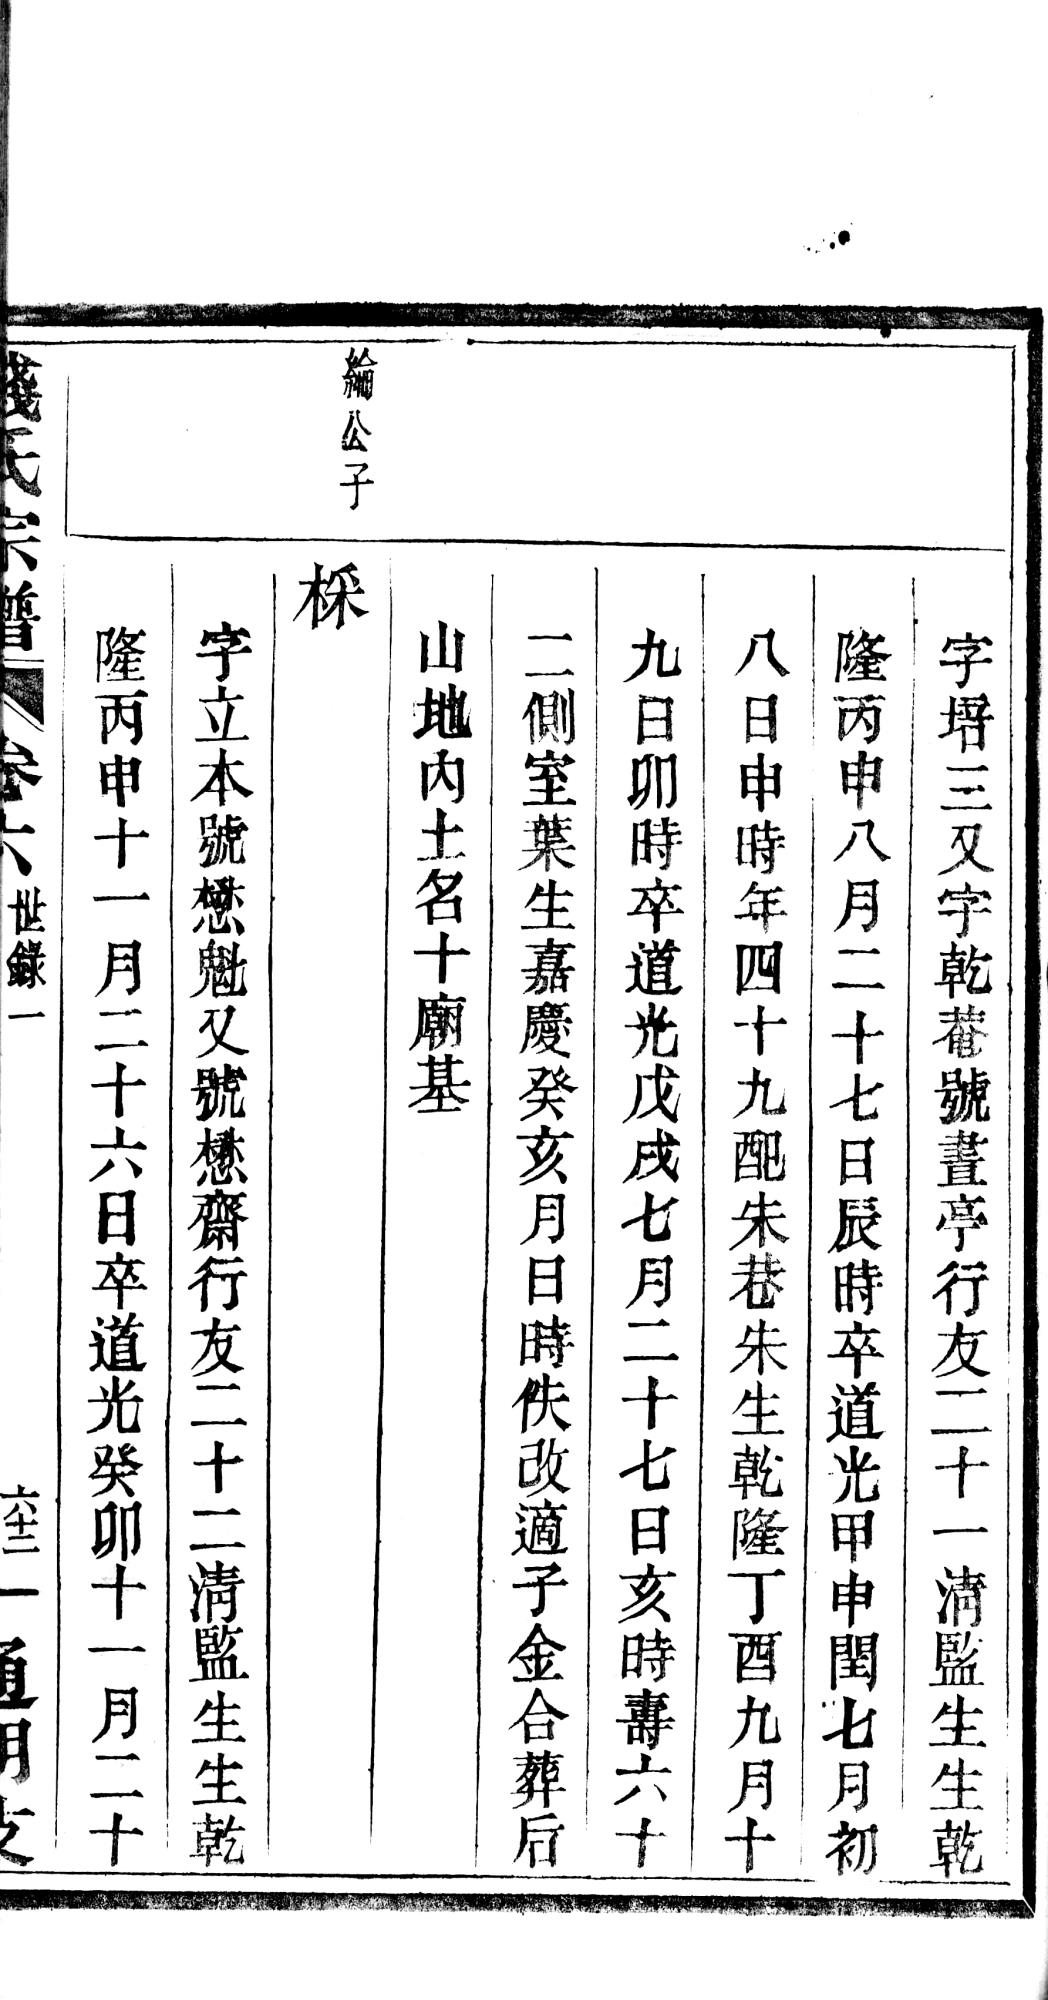 字培三又字乾菴號晝亭行友二十一淸監生生乾
隆丙申八月二十七日辰時卒道光甲申閏七月初
八日申時年四十九配朱巷朱生乾隆丁酉九月十
九日卯時卒道光戊戌七月二十七日亥時壽六十
二側室葉生嘉慶癸亥月日時佚改適子金合葬后
山地內土名十廟基
綸公子
棌
字立本號懋魁又號懋齋行友二十二淸監生生乾
隆丙申十一月二十六日卒道光癸卯十一月二十
錢氏宗譜 卷六 世錄一 六十三 通明支